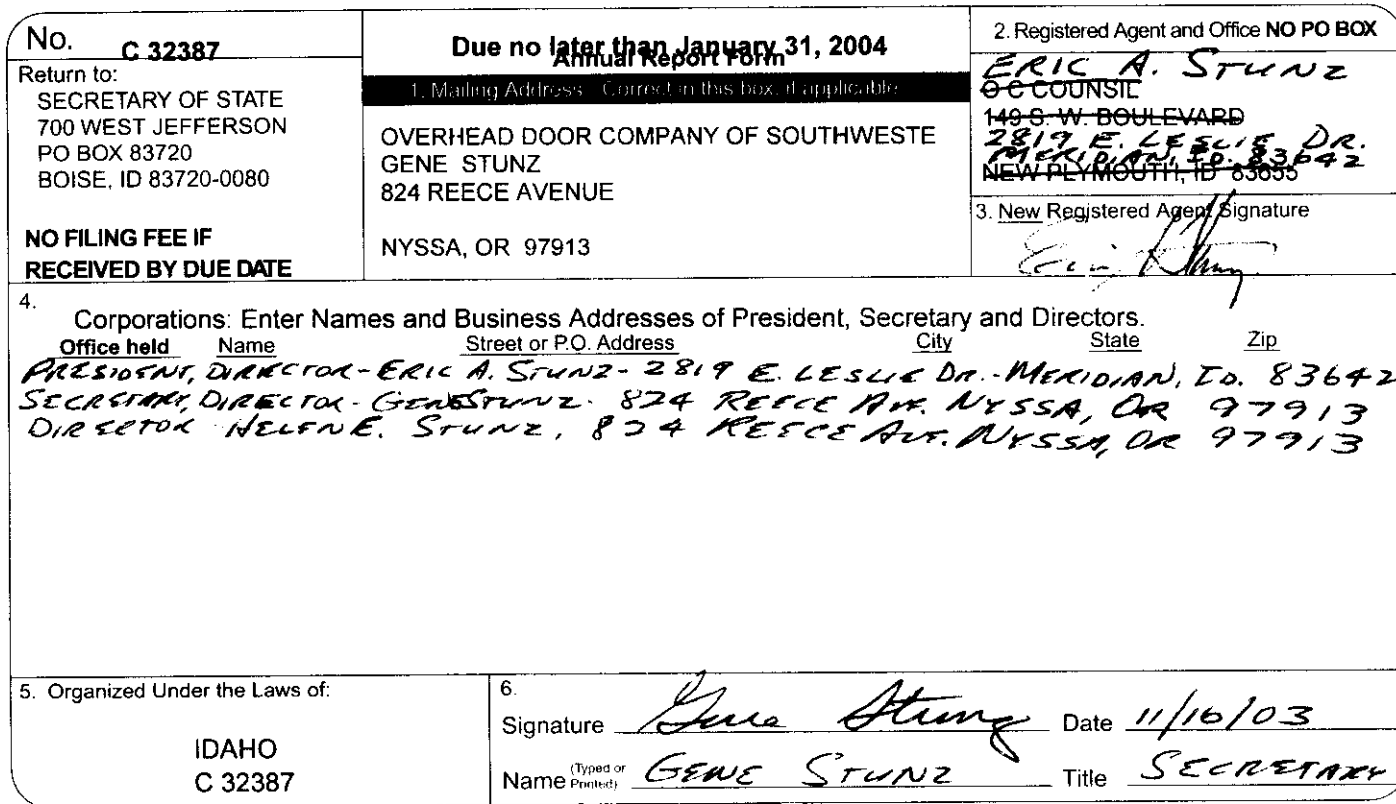 No. C 32387
Return to:
SECRETARY OF STATE
700 WEST JEFFERSON
PO BOX 83720
BOISE, ID 83720-0080
NO FILING FEE IF
RECEIVED BY DUE DATE
Due no later than January 31, 2004
Annual Report Form
1. Mailing Address Correct in this box, if applicable
OVERHEAD DOOR COMPANY OF SOUTHWESTE
GENE STUNZ
824 REECE AVENUE
NYSSA, OR 97913
2. Registered Agent and Office NO PO BOX
ERIC A. STUNZ
O C COUNSIL
149 S. W. BOULEVARD
2819 E. LESLIE DR.
MERIDIAN, ID. 83642
NEW PLYMOUTH, ID 83655
3. New Registered Agent Signature
4.
Corporations: Enter Names and Business Addresses of President, Secretary and Directors.
Office held Name Street or P.O. Address City State Zip
PRESIDENT, DIRECTOR - ERIC A. STUNZ - 2819 E. LESLIE DR. - MERIDIAN, ID. 83642
SECRETARY, DIRECTOR - GENE STUNZ. 824 REECE AVE. NYSSA, OR 97913
DIRECTOR HELEN E. STUNZ, 824 REECE AVE. NYSSA, OR 97913
5. Organized Under the Laws of:
IDAHO
C 32387
6.
Signature Gene Stunz Date 11/16/03
Name (Typed or Printed) GENE STUNZ Title SECRETARY